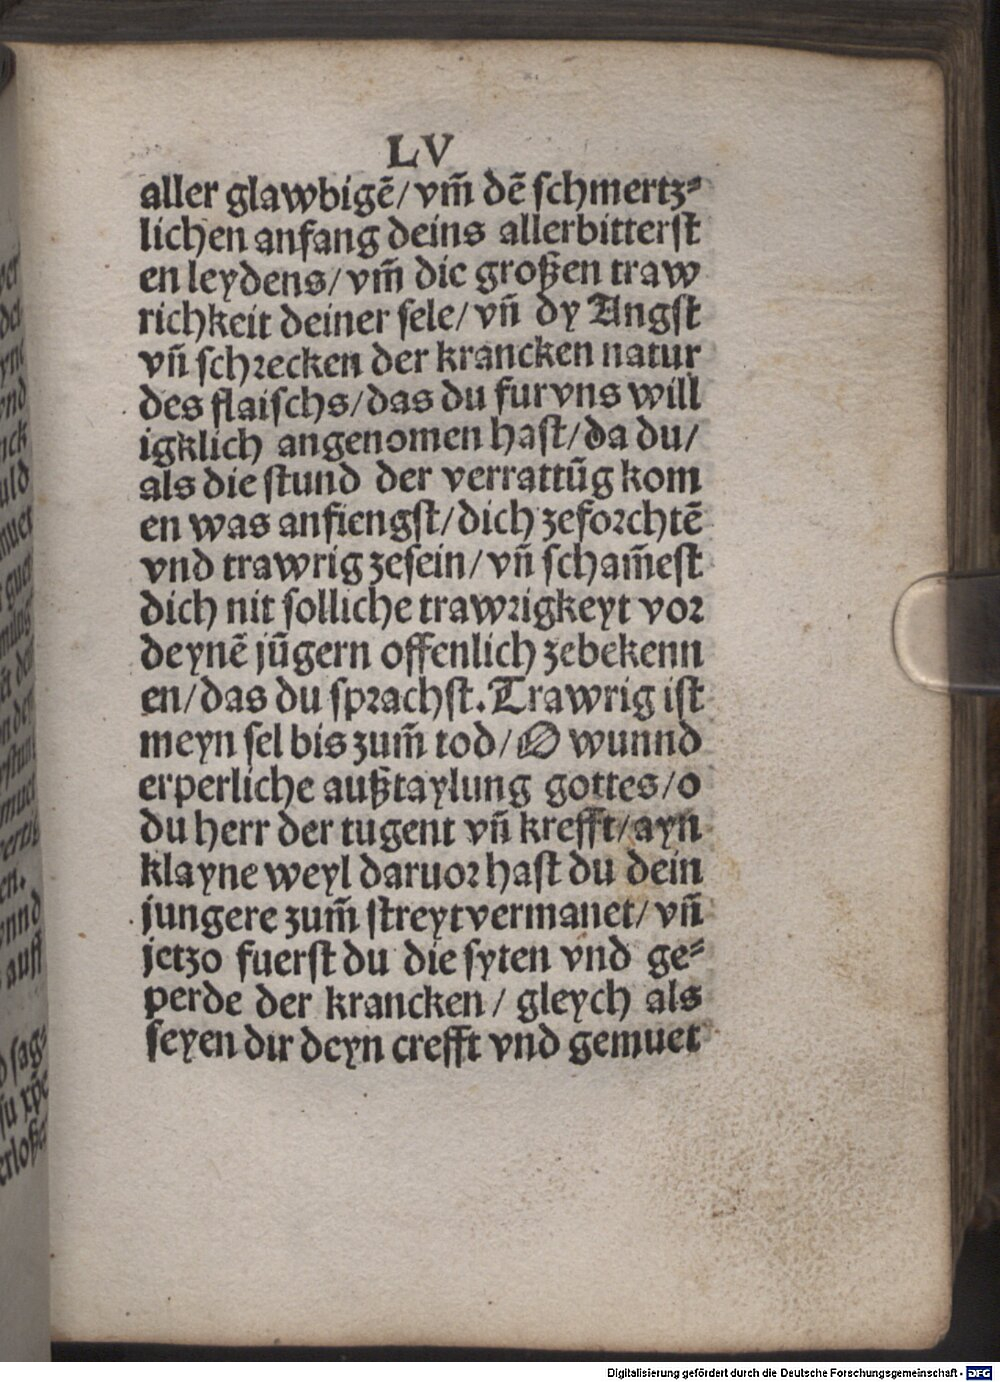 LV
aller glawbigē/vm̄ dē schmertz⸗
lichen anfang deins allerbitterst
en leydens/vm̄ die großen traw
richkeit deiner sele/vn̄ dy Angst
vn̄ schrecken der krancken natur
des flaischs/das du fur vns will
igklich angenomen hast/da du/
als die stund der verrattūg kom
en was anfiengst/dich zeforchtē
vnd trawrig zesein/vn̄ scham̄est
dich nit solliche trawrigkeyt vor
deynē jūgern offenlich zebekenn
en/das du sprachst. Trawrig ist
meyn sel bis zum̄ tod/O wunnd
erperliche außtaylung gottes/o
du herr der tugent vn̄ krefft/ayn
klayne weyl daruor hast du dein
jungere zum̄ streyt vermanet/vn̄
jetzo fuerst du die syten vnd ge⸗
perde der krancken/ gleych als
seyen dir deyn crefft vnd gemuet
Digitalisierung gefördert durch die Deutsche Forschungsgemeinschaft - DFG